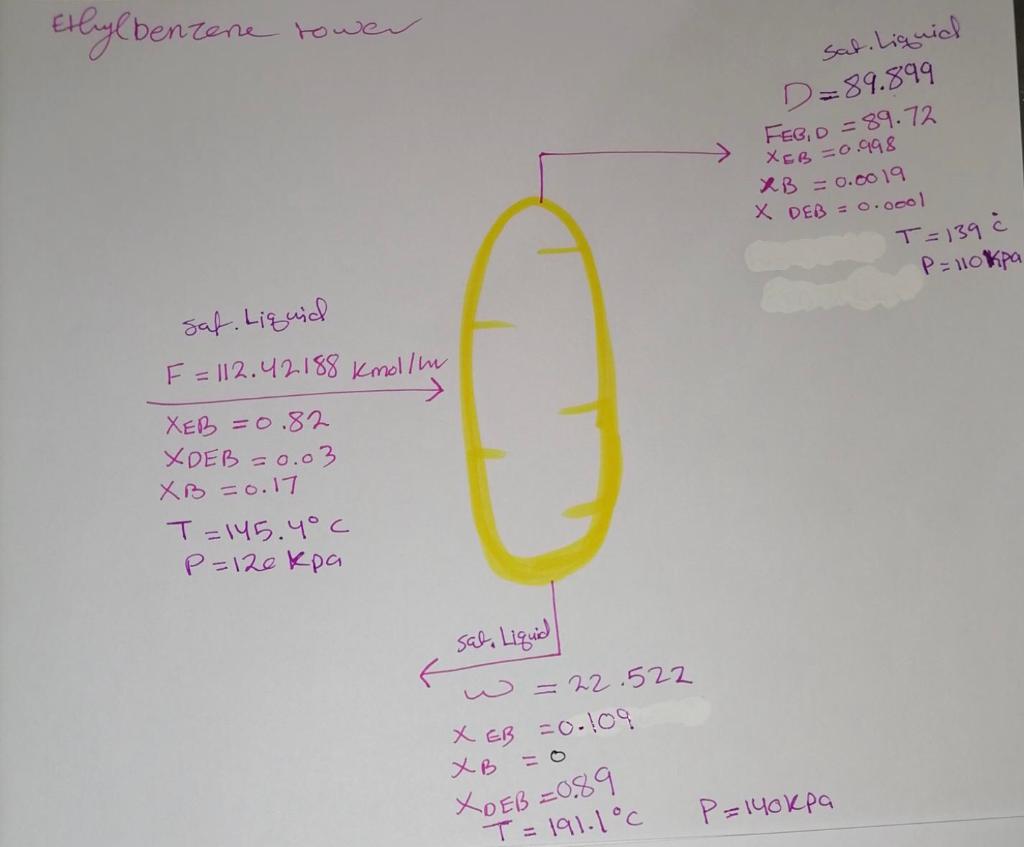 Ethylbenzene tower
Sat. Liquid
D = 89.899
FEB,D = 89.72
XEB = 0.998
XB = 0.0019
X DEB = 0.0001
T = 139 c°
P = 110 Kpa
Sat. Liquid
F = 112.42188 Kmol/hr
XEB = 0.82
XDEB = 0.03
XB = 0.17
T = 145.4° C
P = 120 Kpa
Sat. Liquid
W = 22.522
X EB = 0.109
XB = 0
XDEB = 0.89
T = 191.1°C
P = 140 Kpa